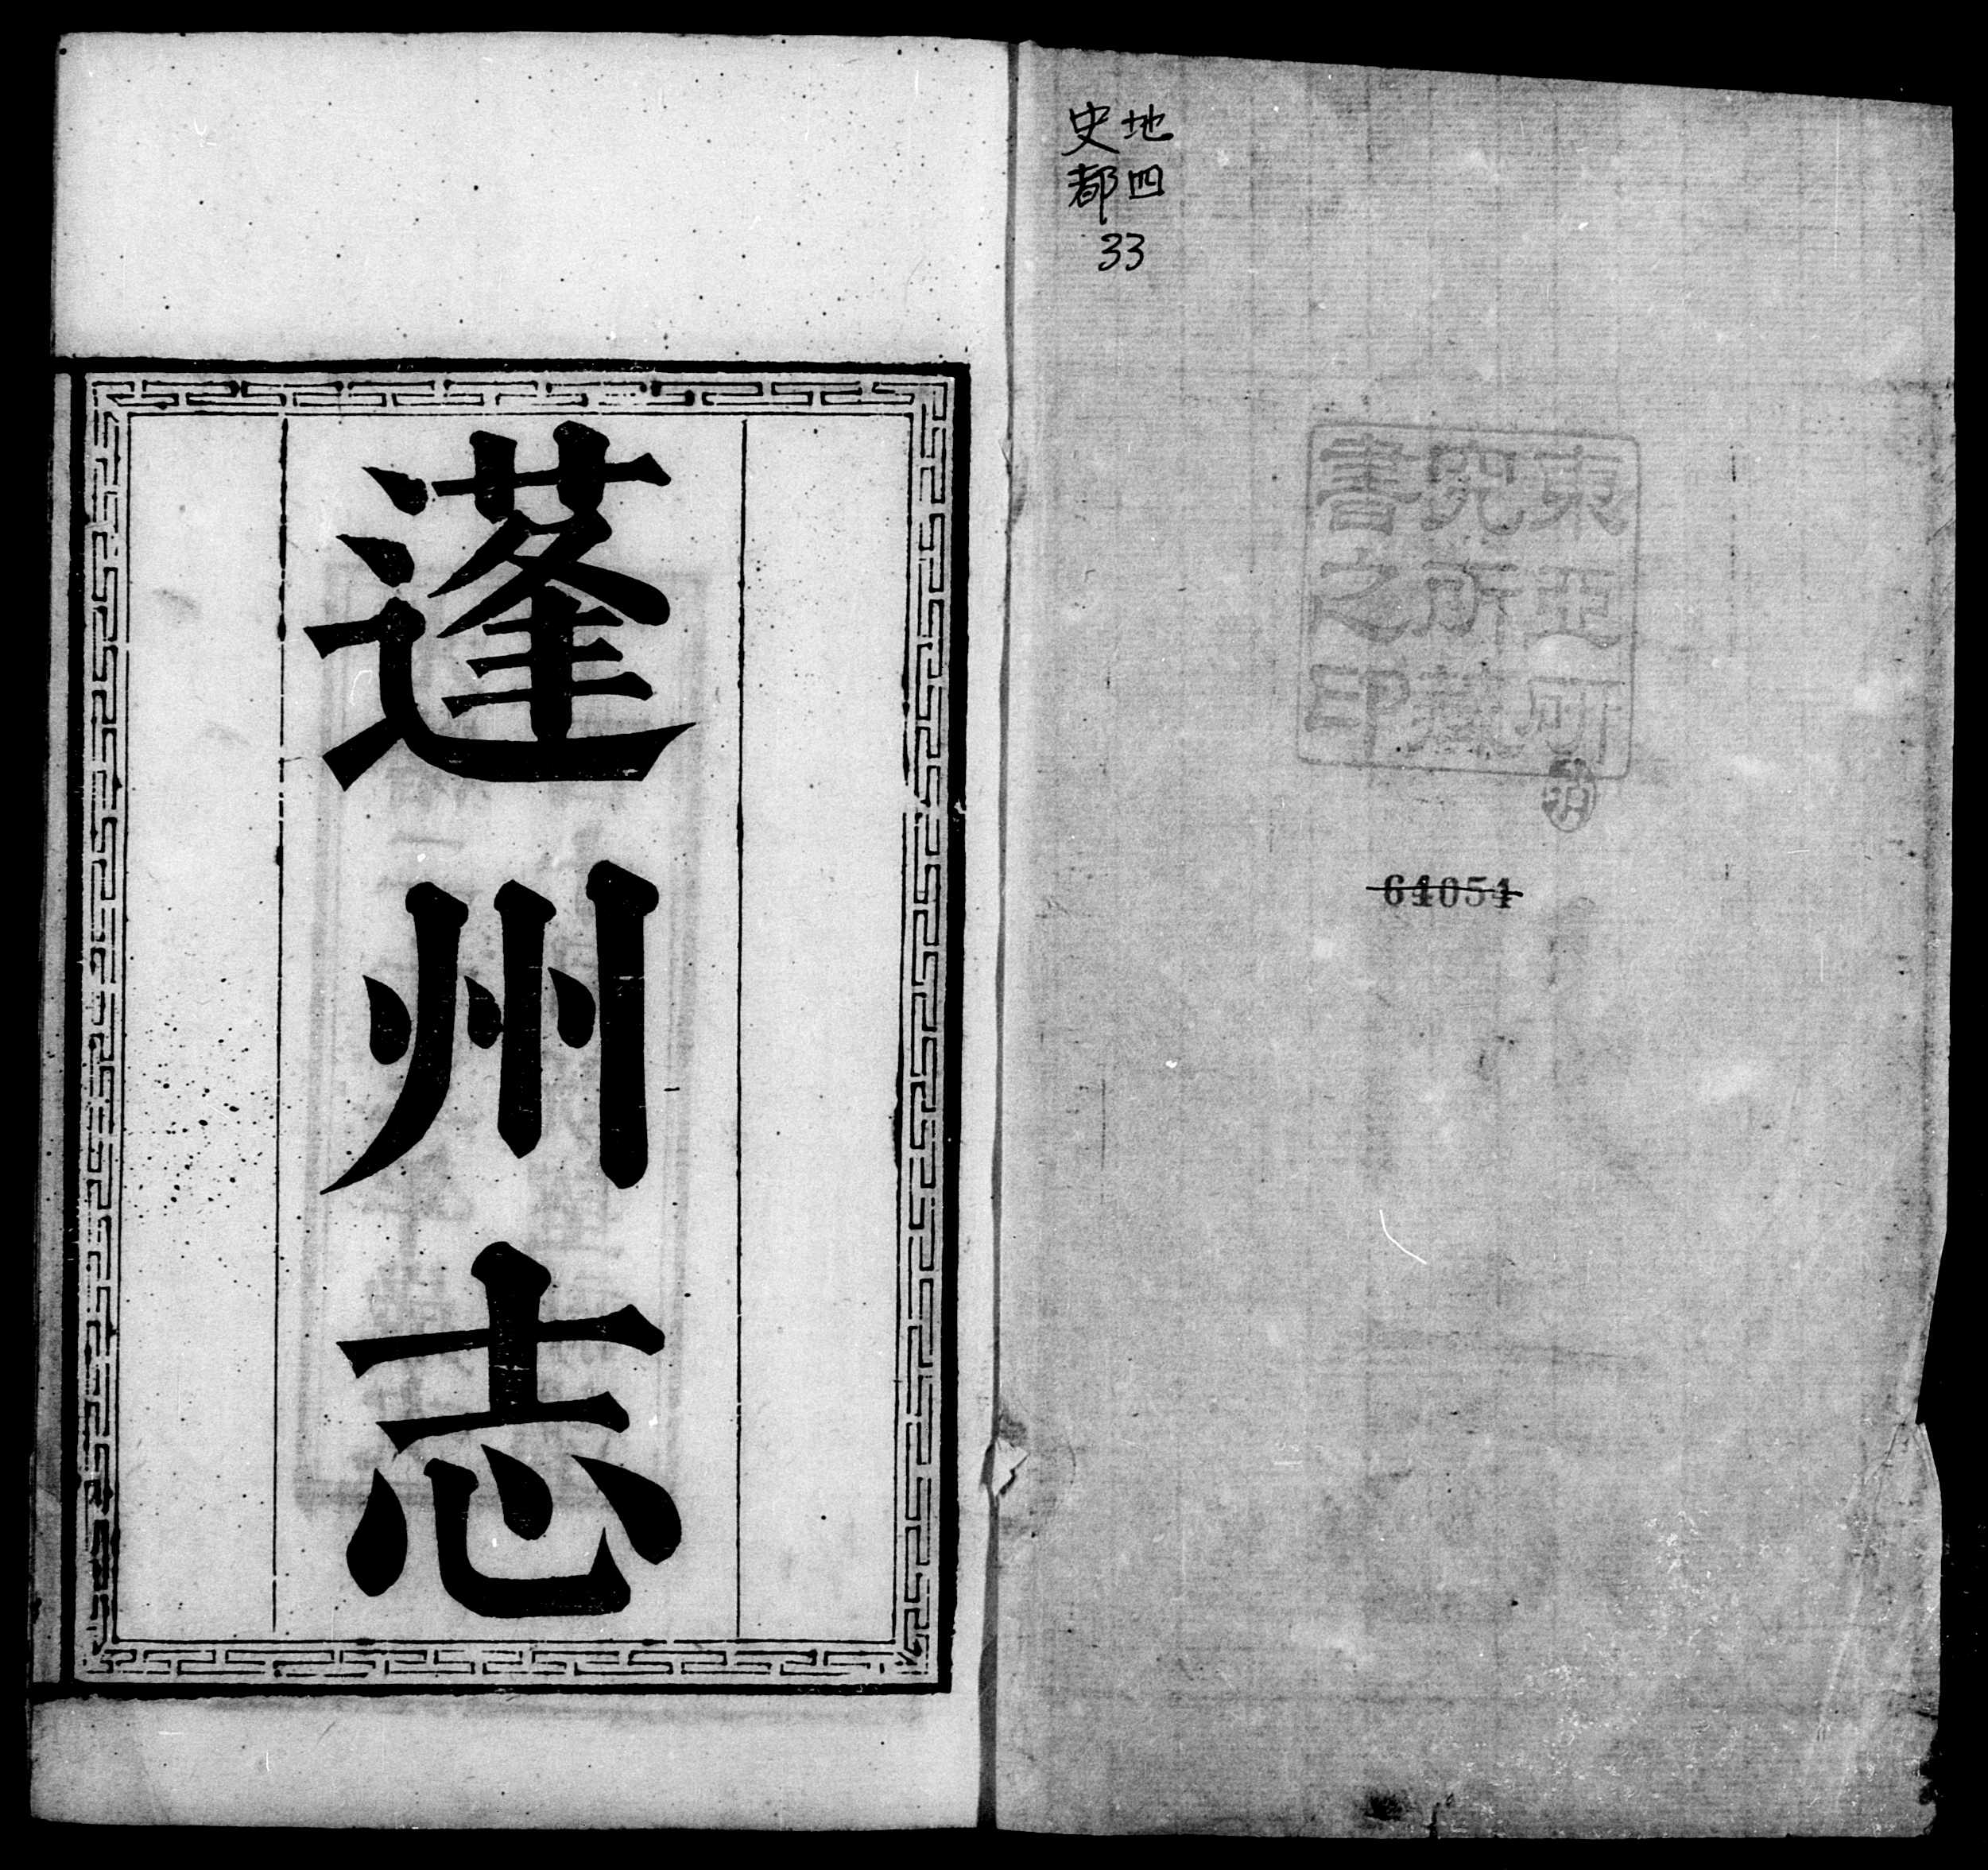 地四
史都
33
東亞研
究所藏
書之印
消
64054
蓬州志